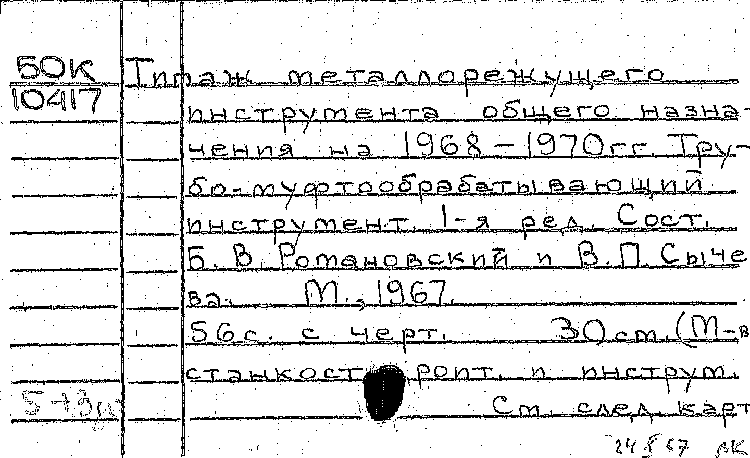 50К Типаж металлорежущего
10417 инструмента общего назна-
чения на 1968-1970гг. Тру-
бо-муфтообрабатывающий
инструмент. 1-я ред. Сост.
Б. В. Романовский и В. П. Сыче
ва. М., 1967.
56с. с черт. 30см. (М-в
станкост роит. и инструм.
См. след. карт
24 X 67